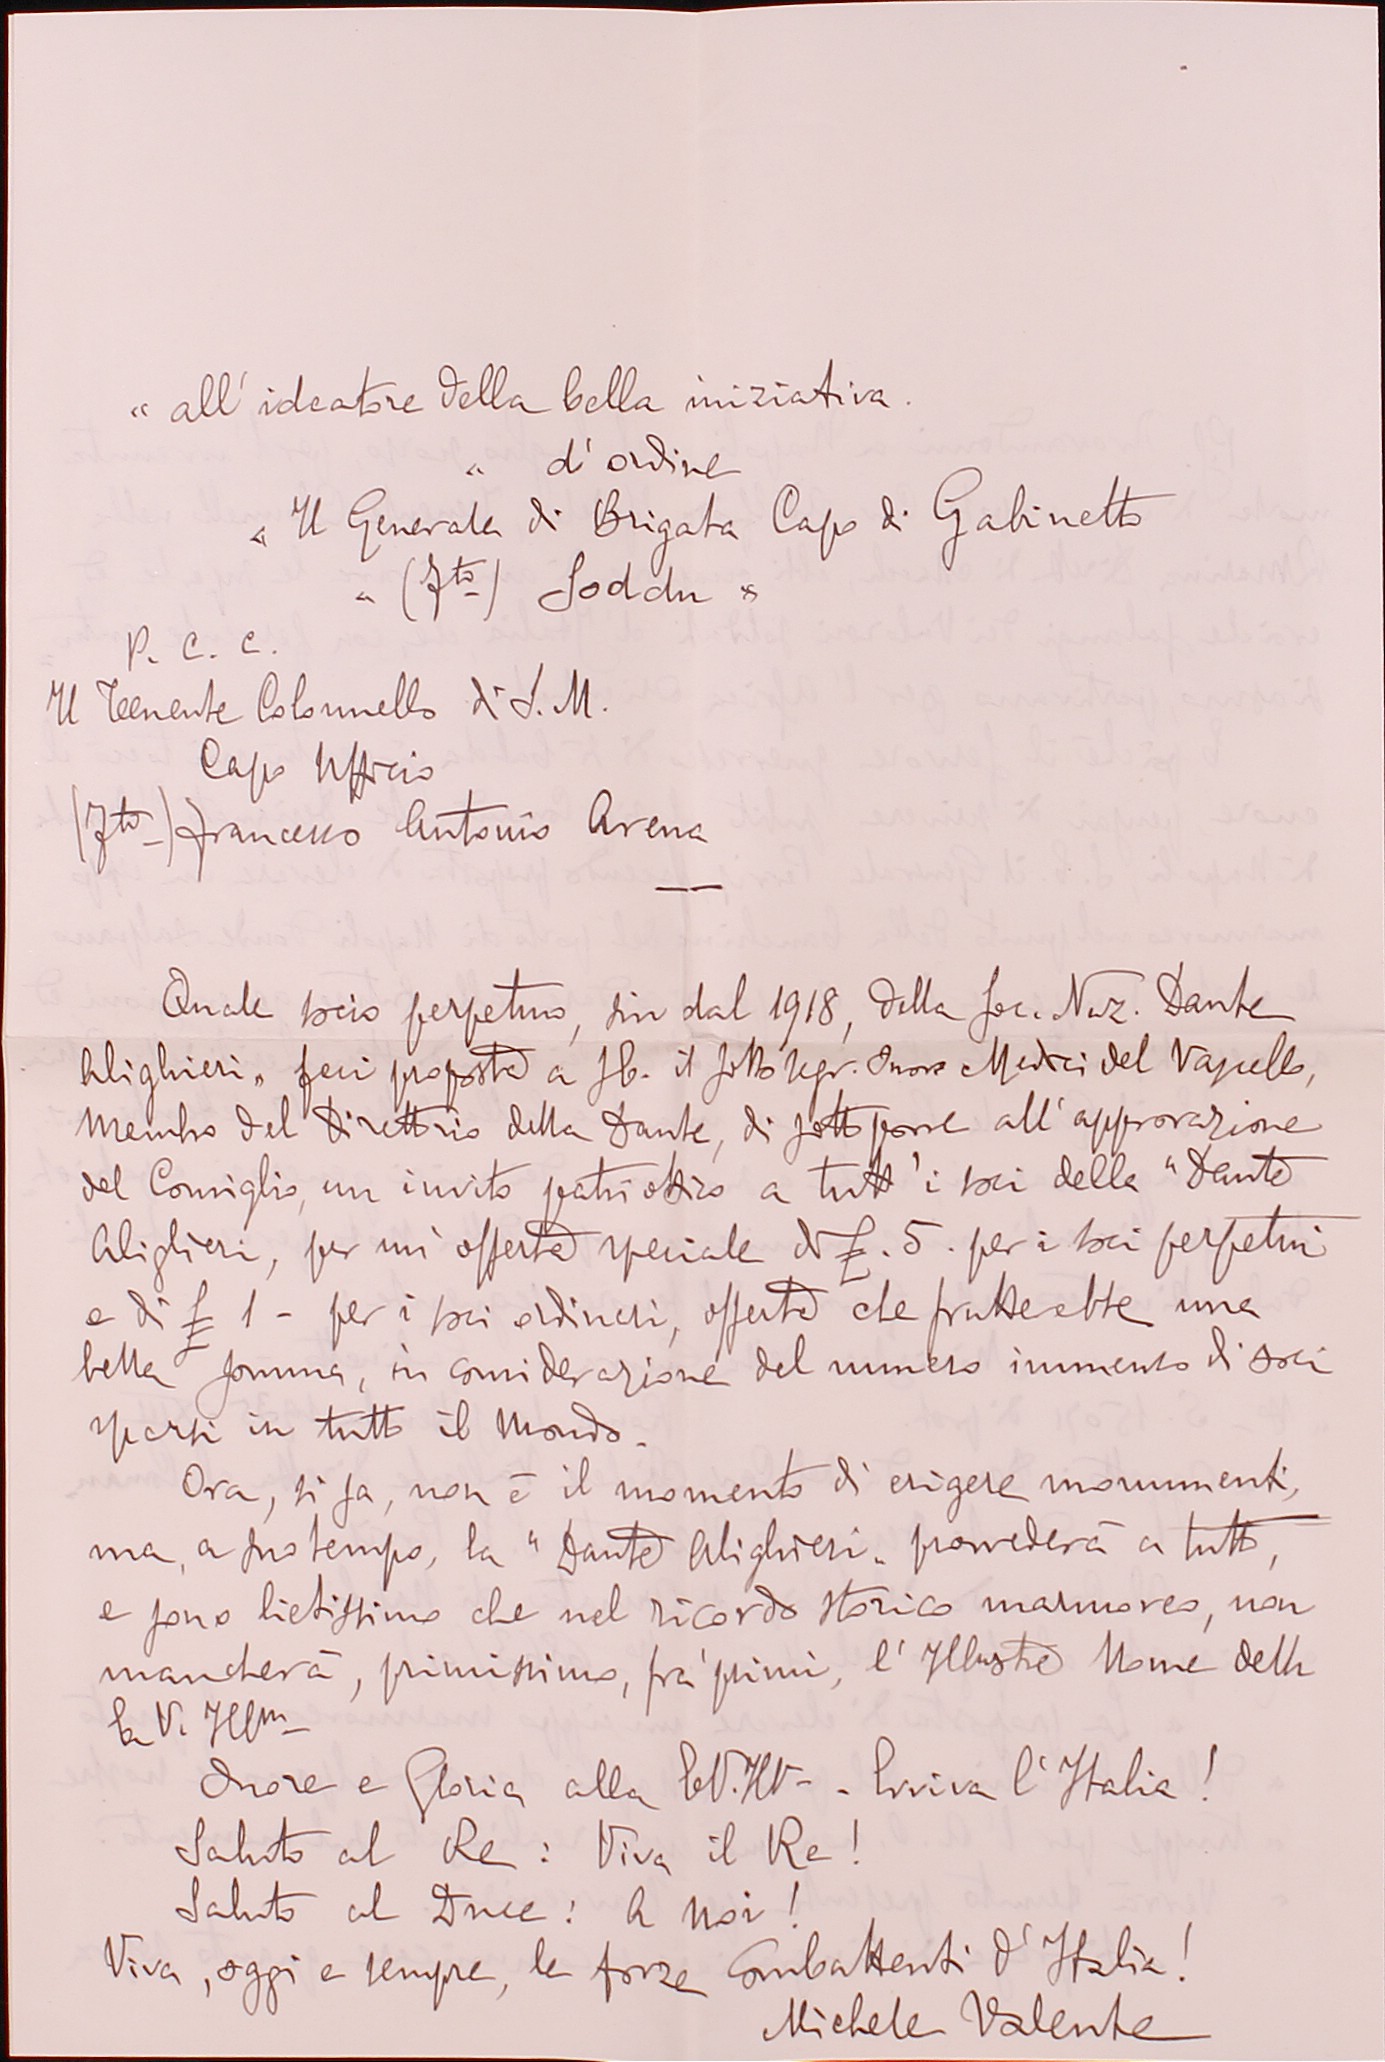 " all' ideatore della bella iniziativa.
" d' ordine
" Il Generale di Brigata Capo di Gabinetto
" (Fto) Soddu "
P. C. C.
Il Tenente Colonnello di S. M.
Capo Ufficio
(Fto) Francesco Antonio Arena
—
Quale socio perpetuo, sin dal 1918, della Soc. Naz. Dante
Alighieri, feci proposta a S. E. il Sotto Segr. Medici del Vascello,
Membro del Direttorio della Dante, di sottoporre all' approvazione
del Consiglio, un invito patriottico a tutt' i soci della "Dante
Alighieri, per un' offerta speciale di £. 5. per i soci perpetui
e di £ 1 - per i soci ordinari, offerta che frutterebbe una
bella somma, in considerazione del numero immenso di soci
sparsi in tutto il Mondo.
Ora, si sa, non è il momento di erigere monumenti,
ma, a suo tempo, la "Dante Alighieri" provvederà a tutto,
e sono lietissimo che nel ricordo storico marmoreo, non
mancherà, primissimo, fra' primi, l' Illustre Nome della
E. V. Illma
Onore e Gloria alla E. V. Ill - - Evviva l' Italia!
Saluto al Re: Viva il Re!
Saluto al Duce: A Noi!
Viva, oggi e sempre, le forze Combattenti d' Italia!
Michele Valente